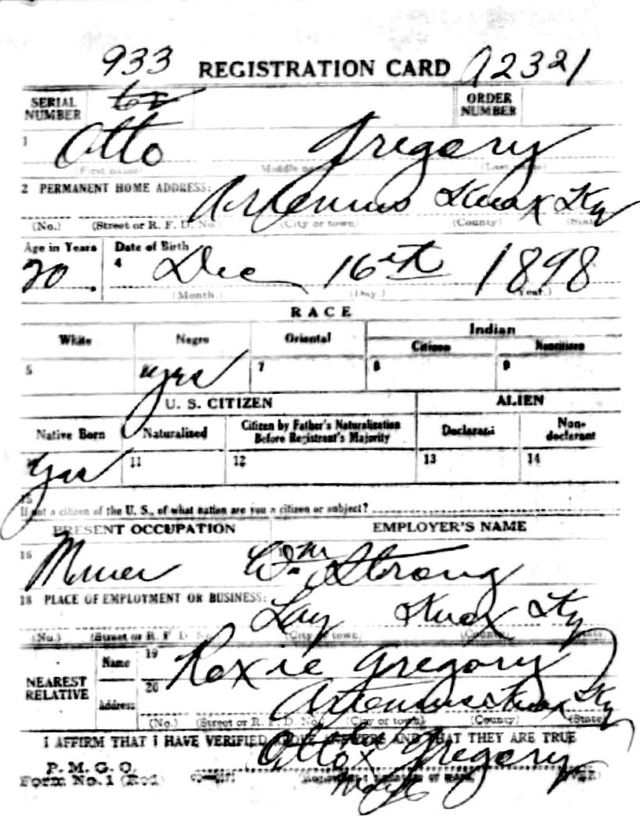 933 REGISTRATION CARD A2321
SERIAL NUMBER ORDER NUMBER
1 Otto Gregory
(First name) Middle name (Last name)
2 PERMANENT HOME ADDRESS:
Artemus Knox Ky
(No.) (Street or R. F. D. No.) (City or town) (County) (State)
Age in Years Date of Birth
20. 4 Dec 16th 1898
(Month.) (Day.) (Year.)
RACE
White Negro Oriental Indian
Citizen Noncitizen
5 yes 7 8 9
U. S. CITIZEN ALIEN
Native Born Naturalized Citizen by Father's Naturalization Before Registrant's Majority Declarant Non-declarant
yes 11 12 13 14
15
If not a citizen of the U. S., of what nation are you a citizen or subject?
PRESENT OCCUPATION EMPLOYER'S NAME
16 Miner Wm Strong
18 PLACE OF EMPLOYMENT OR BUSINESS:
Lay Knox Ky
(No.) (Street or R. F. D. No.) (City or town) (County) (State)
NEAREST RELATIVE Name 19 Roxie Gregory
Address 20 Artemus Knox Ky
(No.) (Street or R. F. D. No.) (City or town) (County) (State)
I AFFIRM THAT I HAVE VERIFIED AND THAT THEY ARE TRUE
P. M. G. O.
Form No. 1 (Red)
Otto x Gregory